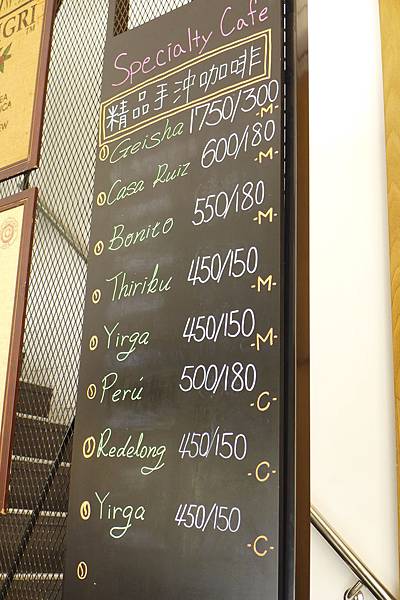 NGRI™
Specialty Cafe
精品手沖咖啡
Geisha 1750/300 -M-
Casa Ruiz 600/180 -M-
Bonito 550/180 -M-
Thiriku 450/150 -M-
Yirga 450/150 -M-
Perú 500/180 -C-
Redelong 450/150 -C-
Yirga 450/150 -C-